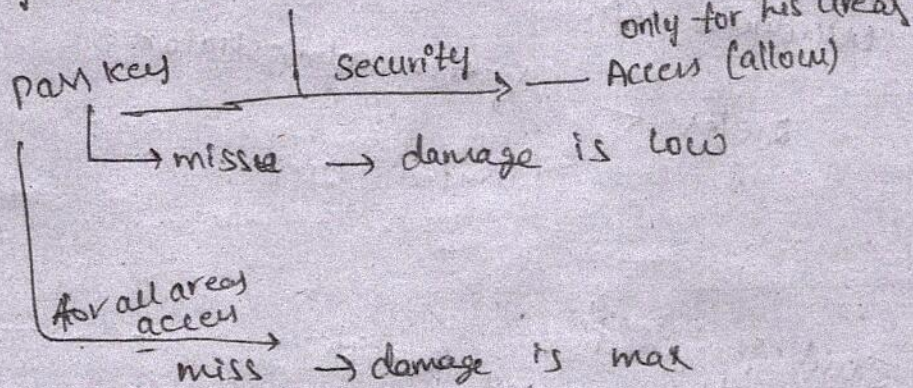 only for his areas
Pass key security Access (allow)
misse → damage is low
for all areas
access
miss → damage is max